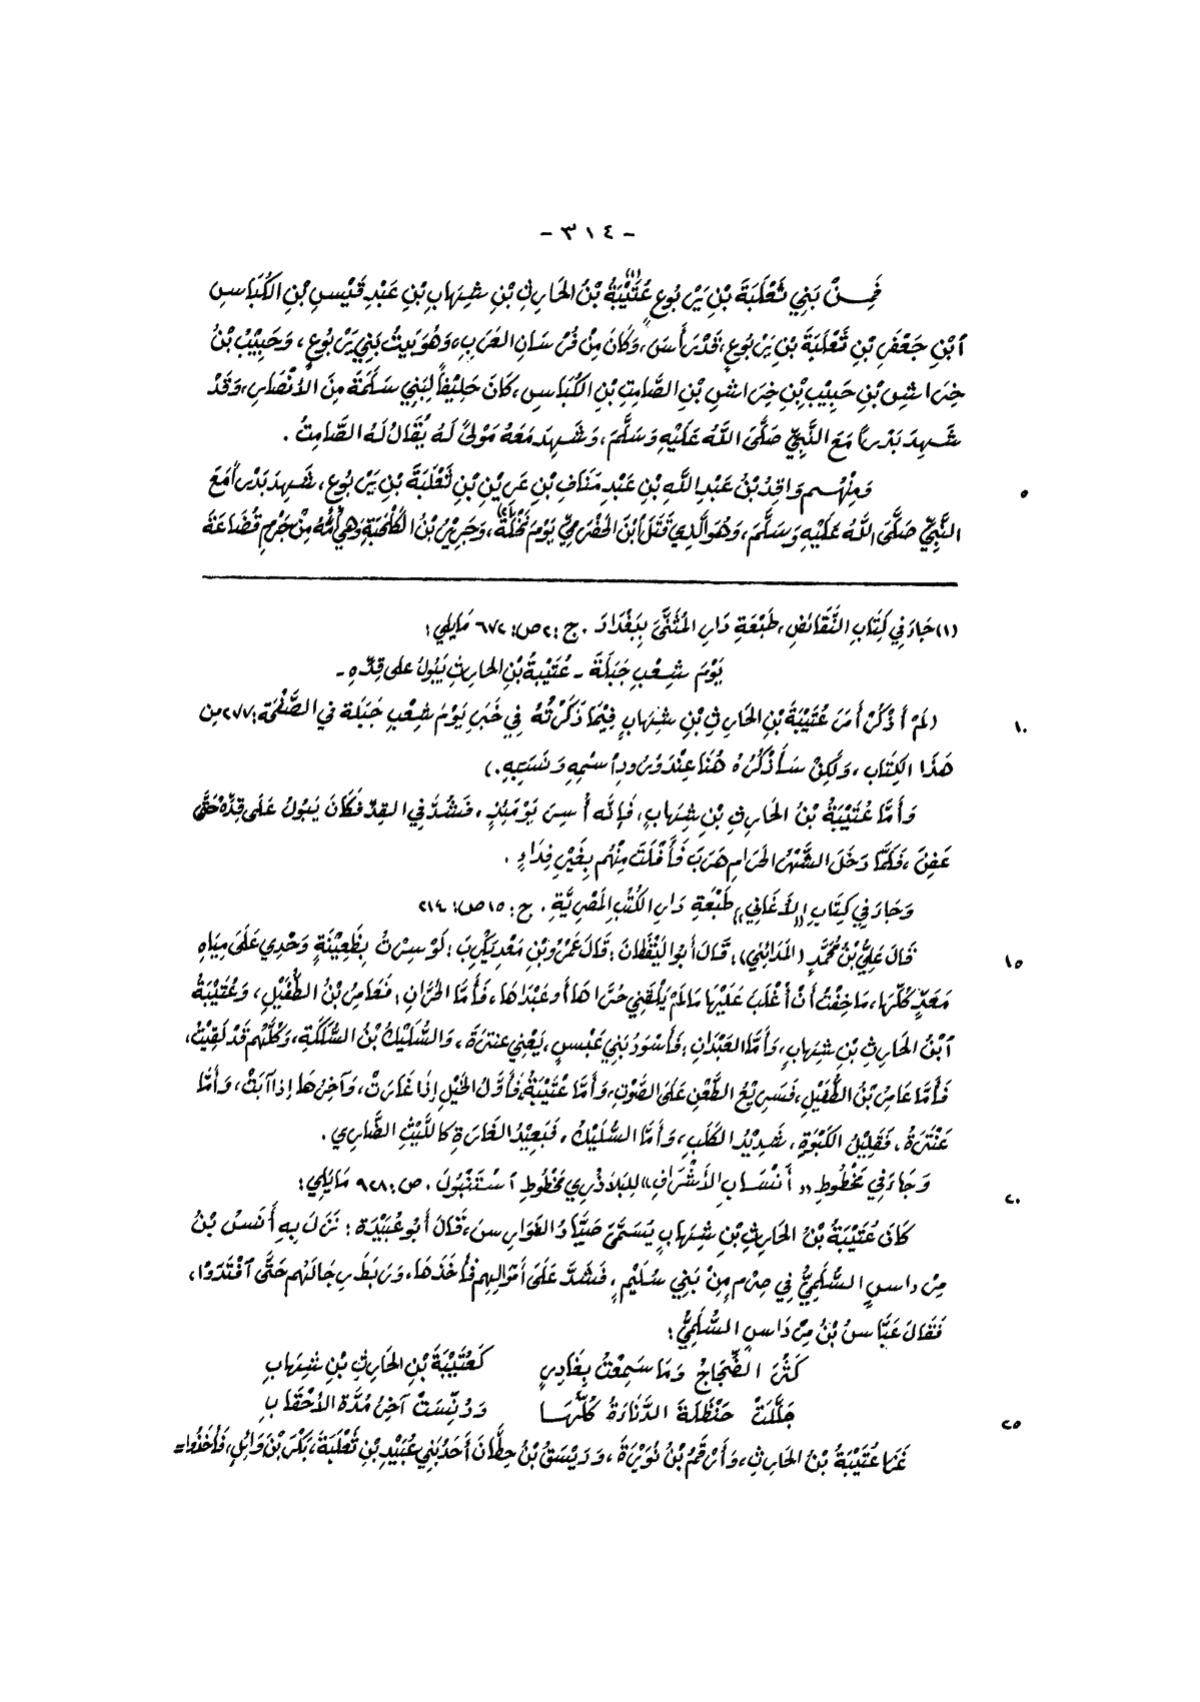 - ٣١٤ -
فَمِنْ بَنِي ثَعْلَبَةَ بْنِ يَرْبُوعٍ عُتَيْبَةُ(١) بْنُ الحَارِثِ بْنِ شِهَابِ بْنِ عَبْدِ قَيْسِ بْنِ الكُبَاسِ
ٱبْنِ جَعْفَرِ بْنِ ثَعْلَبَةَ بْنِ يَرْبُوعٍ، قَدْ رَأَسَ، وَكَانَ مِنْ فُرْسَانِ العَرَبِ، وَهُوَ بَيْتُ بَنِي يَرْبُوعٍ، وَحَبِيْبُ بْنُ
خِرَاشِ بْنِ حَبِيْبِ بْنِ خِرَاشِ بْنِ الصَّامِتِ بْنِ الكُبَاسِ، كَانَ حَلِيْفاً لِبَنِي سَلَمَةَ مِنَ الأَنْصَارِ، وَقَدْ
شَهِدَ بَدْراً مَعَ النَّبِيِّ صَلَّى اللَّهُ عَلَيْهِ وَسَلَّمَ، وَشَهِدَ مَعَهُ مَوْلىً لَهُ يُقَالُ لَهُ الصَّامِتُ.
وَمِنْهُم وَاقِدُ بْنُ عَبْدِ اللَّهِ بْنِ عَبْدِ مَنَافِ بْنِ عَرِيْنِ بْنِ ثَعْلَبَةَ بْنِ يَرْبُوعٍ، شَهِدَ بَدْراً مَعَ ٥
النَّبِيِّ صَلَّى اللَّهُ عَلَيْهِ وَسَلَّمَ، وَهُوَ الَّذِي قَتَلَ ٱبْنَ الحَضْرَمِيِّ يَوْمَ نَخْلَةَ، وَجَرِيْرُ بْنُ الكَلْحَبَةِ وَهِيَ أُمُّهُ مِنْ جَرْمِ قُضَاعَةَ
(١) جَاءَ فِي كِتَابِ النَّقَائِضِ، طَبْعَةِ دَارِ المُثَنَّى بِبَغْدَادَ. ج: ٢ ص: ٦٧٢ مَايَلِي:
يَوْمَ شِعْبِ جَبَلَةَ - عُتَيْبَةُ بْنِ الحَارِثِ يَبُولُ عَلَى قِدِّهِ -
(لَمْ أَذْكُرْ أَمْرَ عُتَيْبَةَ بْنِ الحَارِثِ بْنِ شِهَابٍ فِيْمَا ذَكَرْتُهُ فِي خَبَرِ يَوْمِ شِعْبِ جَبَلَةَ فِي الصَّفْحَةِ: ٢٧٧ مِن ١٠
هَذَا الكِتَابِ، وَلَكِنْ سَأَذْكُرُهُ هُنَا عِنْدَ وُرُودِ ٱسْمِهِ وَنَسَبِهِ.)
وَأَمَّا عُتَيْبَةُ بْنُ الحَارِثِ بْنِ شِهَابٍ، فَإِنَّه أُسِرَ يَوْمَئِذٍ، فَشُدَّ فِي القِدِّ فَكَانَ يَبُولُ عَلَى قِدِّهِ حَتَّى
عَفِنَ، فَلَمَّا دَخَلَ الشَّهْرُ الحَرَامِ هَرَبَ فَأَفْلَتَ مِنْهُم بِغَيْرِ فِدَاءٍ.
وَجَاءَ فِي كِتَابِ «الأَغَانِي» طَبْعَةِ دَارِ الكُتُبِ المَصْرِيَّةِ. ج: ١٥ ص: ٢١٤
قَالَ عَلِيُّ بْنُ مُحَمَّدٍ (المَدَائِنِي): قَالَ أَبُو اليَقْظَانَ: قَالَ عَمْرُو بْنِ مَعْدِ يَكْرِبَ: لَوْ سِرْتُ بِظَعِيْنَةٍ وَحْدِي عَلَى مِيَاهِ ١٥
مَعَدٍّ كُلِّهَا، مَا خِفْتُ أَنْ أُغْلَبَ عَلَيْهَا مَا لَمْ يَلْقَنِي حُرَّاهَا أَو عَبْدَاهَا، فَأَمَّا الحُرَّانِ: فَعَامِرُ بْنُ الطُّفَيْلِ، وَعُتَيْبَةُ
ٱبْنُ الحَارِثِ بْنِ شِهَابٍ، وَأَمَّا العَبْدَانِ: فَأَسْوَدُ بَنِي عَبْسٍ، يَعْنِي عَنْتَرَةَ، وَالسُّلَيْكُ بْنُ السُّلَكَةِ، وَكُلَّهُم قَدْ لَقِيْتُ،
فَأَمَّا عَامِرُ بْنُ الطُّفَيْلِ، فَسَرِيْعُ الطَّعْنِ عَلَى الصَّوْتِ، وَأَمَّا عُتَيْبَةُ، فَأَوَّلُ الخَيْلِ إِذَا غَارَتْ، وَآخِرُهَا إِذَا آبَتْ، وَأَمَّا
عَنْتَرَةُ، فَقَلِيْلُ الكَبْوَةِ، شَدِيْدُ الكَلَبِ، وَأَمَّا السُّلَيْكُ، فَبَعِيْدُ الغَارَةِ كَاللَّيْثِ الضَّارِي.
وَجَاءَ فِي مَخْطُوطِ «أَنْسَابِ الأَشْرَافِ» لِلبَلَاذُرِيِ مَخْطُوطِ ٱسْتَنْبُولَ. ص: ٩٢٨ مَايَلِي: ٢٠
كَانَ عُتَيْبَةُ بْنُ الحَارِثِ بْنِ شِهَابٍ يُسَمَّى صَيَّادَ الفَوَارِسِ، قَالَ أَبُو عُبَيْدَةَ: نَزَلَ بِهِ أَنَسُ بْنُ
مِرْدَاسٍ السُّلَمِيُّ فِي صِرْمٍ مِنْ بَنِي سُلَيْمٍ، فَشَدَّ عَلَى أَمْوَالِهِم فَأَخَذَهَا، وَرَبَطَ رِجَالَهُم حَتَّى ٱفْتَدَوْا،
فَقَالَ عَبَّاسُ بْنُ مِرْدَاسٍ السُّلَمِيُّ:
كَثُرَ الضِّجَاجُ وَمَا سَمِعْتُ بِغَادِرٍ كَعُتَيْبَةَ بْنِ الحَارِثِ بْنِ شِهَابِ
جَلَّلْتَ حَنْظَلَةَ الدَّنَاءَةَ كُلَّهَا وَدَنِسْتَ آخِرَ مُدَّةِ الأَحْقَابِ ٢٥
غَزَا عُتَيْبَةُ بْنُ الحَارِثِ، وَأَرْقَمُ بْنُ نُوَيْرَةَ، وَدَيْسَقُ بْنُ حِطَّانَ أَحَدُ بَنِي عُبَيْدِ بْنِ ثَعْلَبَةَ، بَكْرَ بْنَ وَائِلٍ، فَأَخَذُوا =